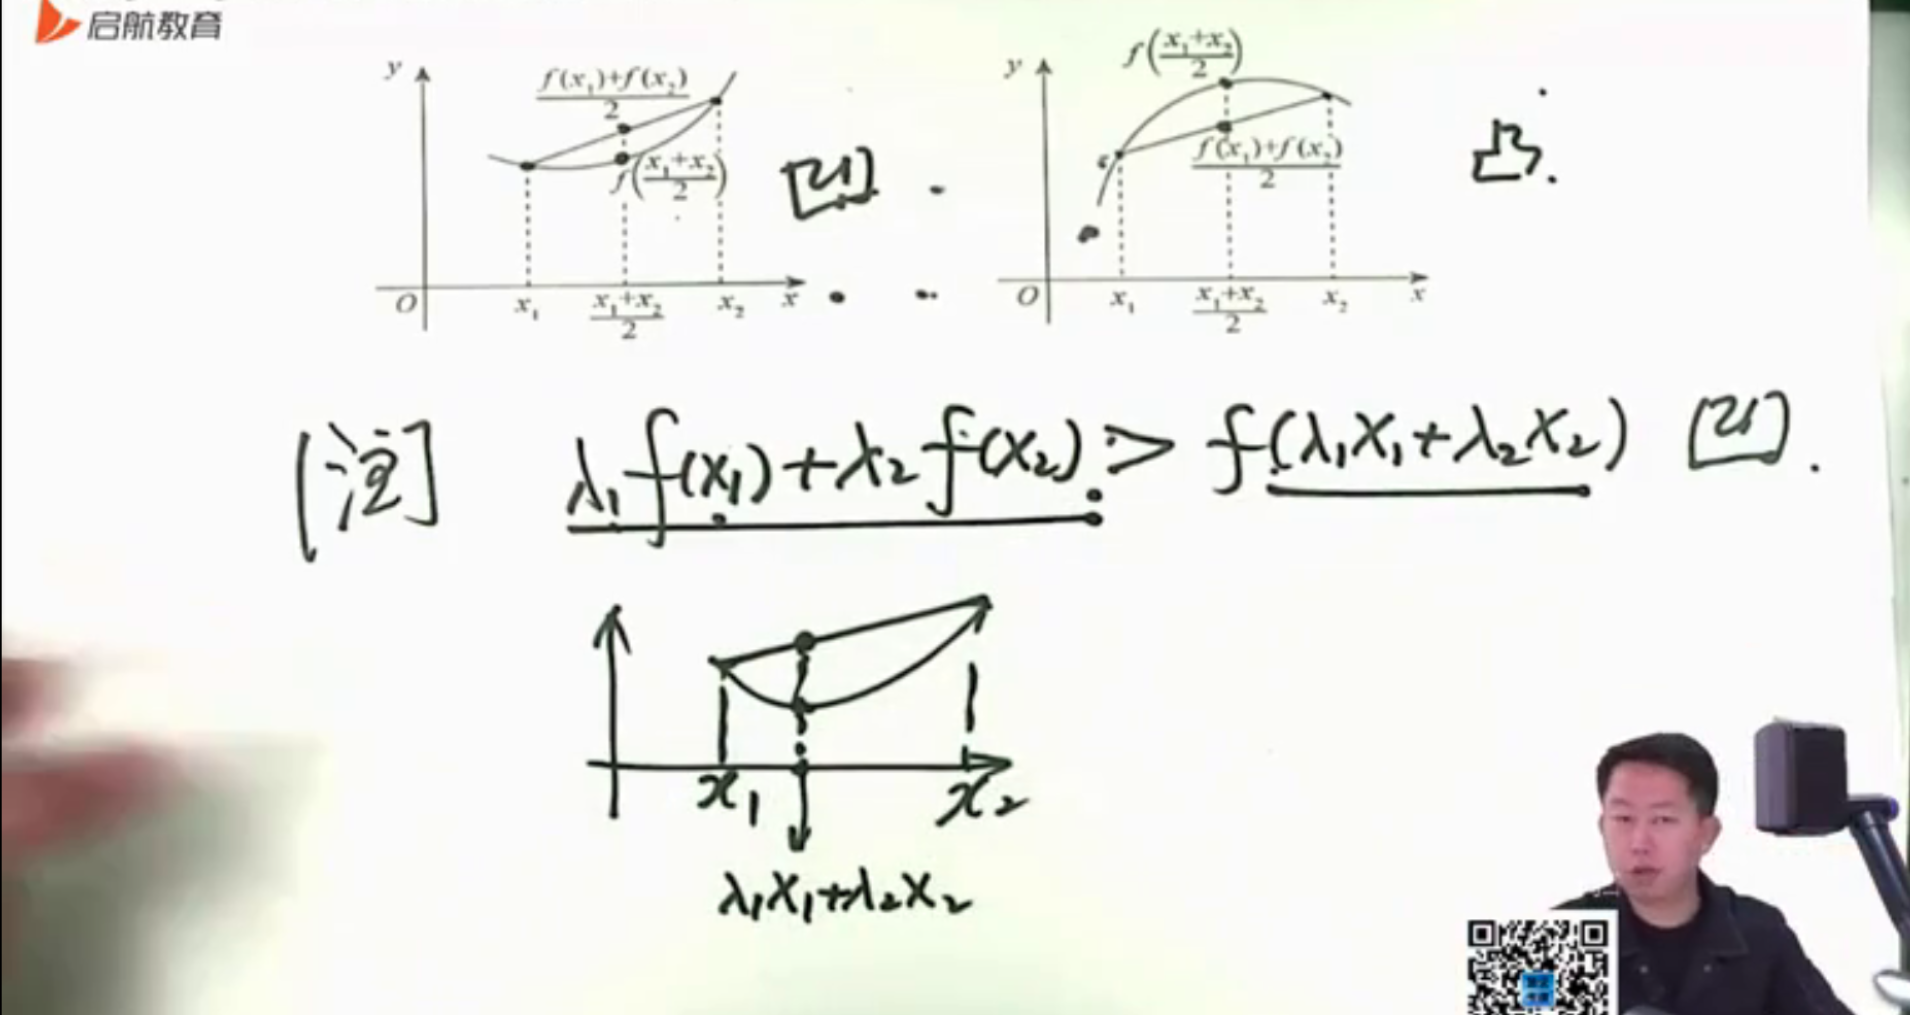 启航教育
y
\frac{f(x_1)+f(x_2)}{2}
f(\frac{x_1+x_2}{2})
凹
O
x_1
\frac{x_1+x_2}{2}
x_2
x
y
f(\frac{x_1+x_2}{2})
\frac{f(x_1)+f(x_2)}{2}
凸.
O
x_1
\frac{x_1+x_2}{2}
x_2
x
[注] λ_1 f(x_1)+λ_2 f(x_2) > f(λ_1 x_1+λ_2 x_2) 凹.
x_1
x_2
λ_1 x_1+λ_2 x_2